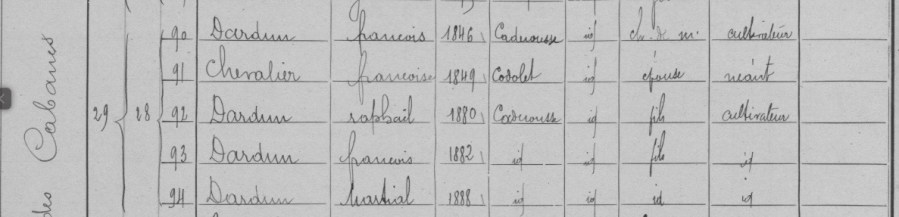 90 Dardun francois 1846 Caderousse id ch. de m. cultivateur
91 Chevalier francoise 1849 Codolet id épouse néant
29 28 92 Dardun raphaël 1880 Caderousse id fils cultivateur
93 Dardun francois 1882 id id fils id
94 Dardun Martial 1888 id id id id
des Cabanes